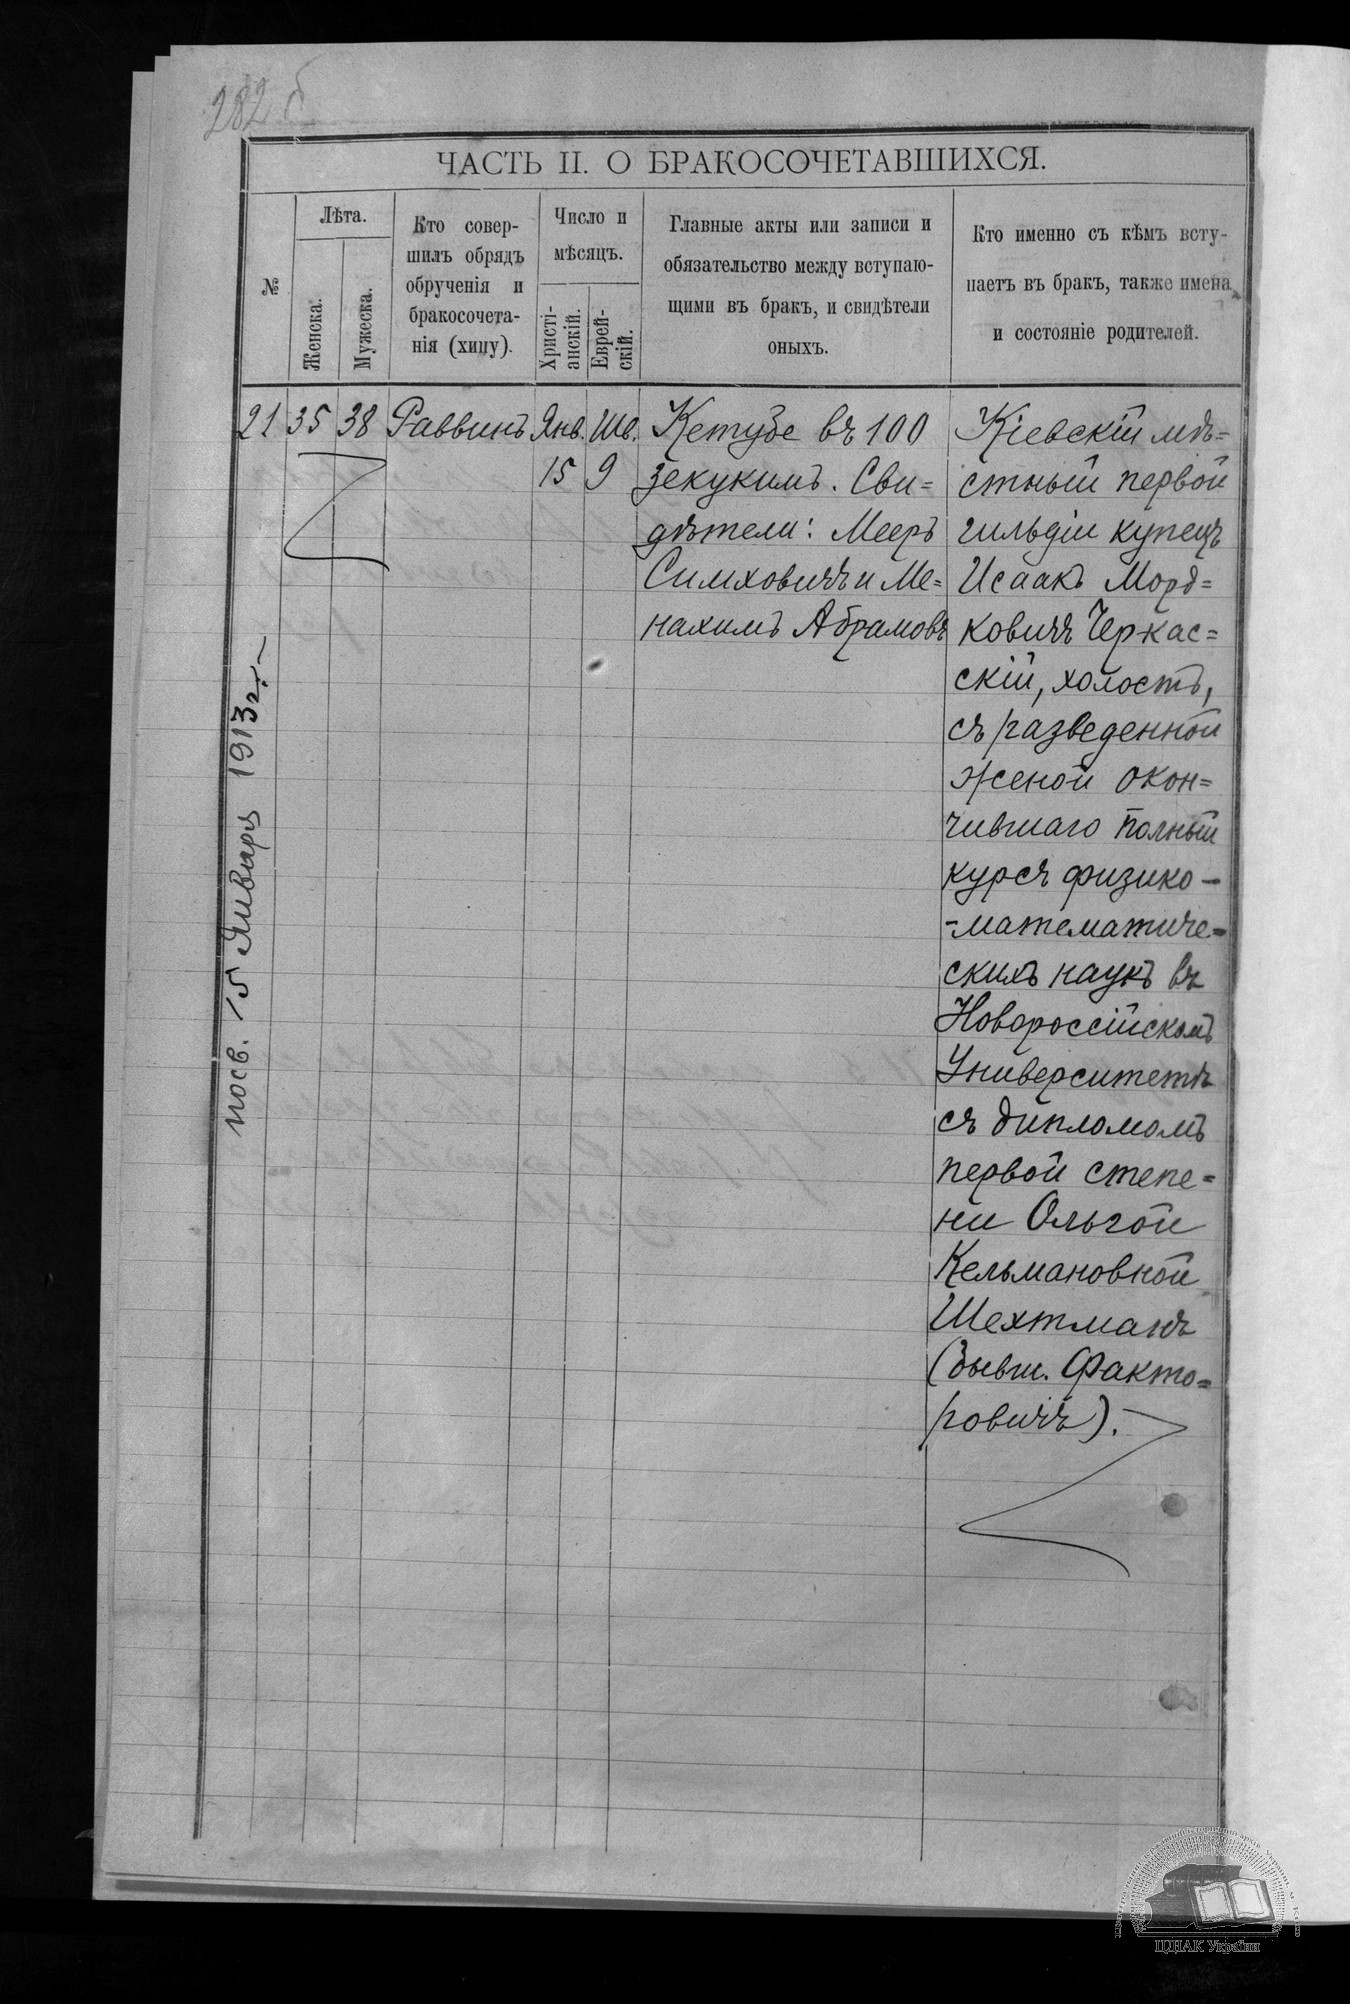 282 б
ЧАСТЬ II. О БРАКОСОЧЕТАВШИХСЯ.
№
Лѣта.
Женска.
Мужеска.
Кто совер-
шилъ обрядъ
обрученія и
бракосочета-
нія (хипу).
Число и
мѣсяцъ.
Христі-
анскій.
Еврей-
скій.
Главные акты или записи и
обязательство между вступаю-
щими въ бракъ, и свидѣтели
оныхъ.
Кто именно съ кѣмъ всту-
паетъ въ бракъ, также имена
и состояніе родителей.
21 35 38 Раввинъ Янв. Шв.
15 9
Кетубе въ 100
зекукимъ. Сви=
дѣтели: Мееръ
Симховичъ и Ме=
нахимъ Абрамовъ
Кіевскій мѣ=
стный первой
гильдіи купецъ
Исаакъ Морд=
ковичъ Черкас=
скій, холостъ,
съ разведенной
женой окон=
чившаго полный
курсъ физико-
-математиче=
скихъ наукъ въ
Новороссійскомъ
Университетѣ
съ дипломомъ
первой степе=
ни Ольгой
Кельмановной
Шехтманъ
(бывш. Факто=
ровичъ).
посв. 15 Января 1913 г.-
ЦДІАК України